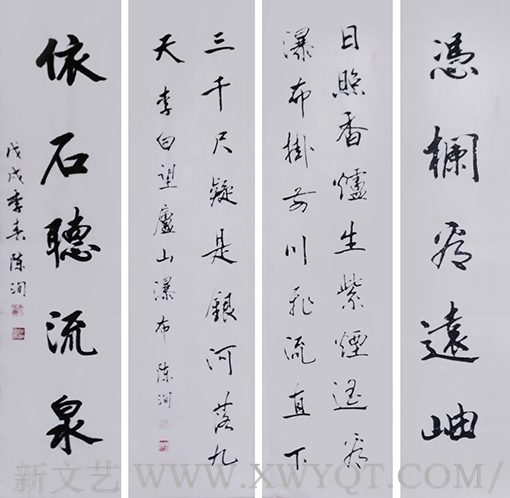 憑欄看遠岫
日照香爐生紫煙遥看
瀑布掛前川飛流直下
三千尺疑是銀河落九
天 李白望廬山瀑布 陈洵
依石聽流泉
戊戌季春陈洵
新文艺 WWW.XWYQT.COM/